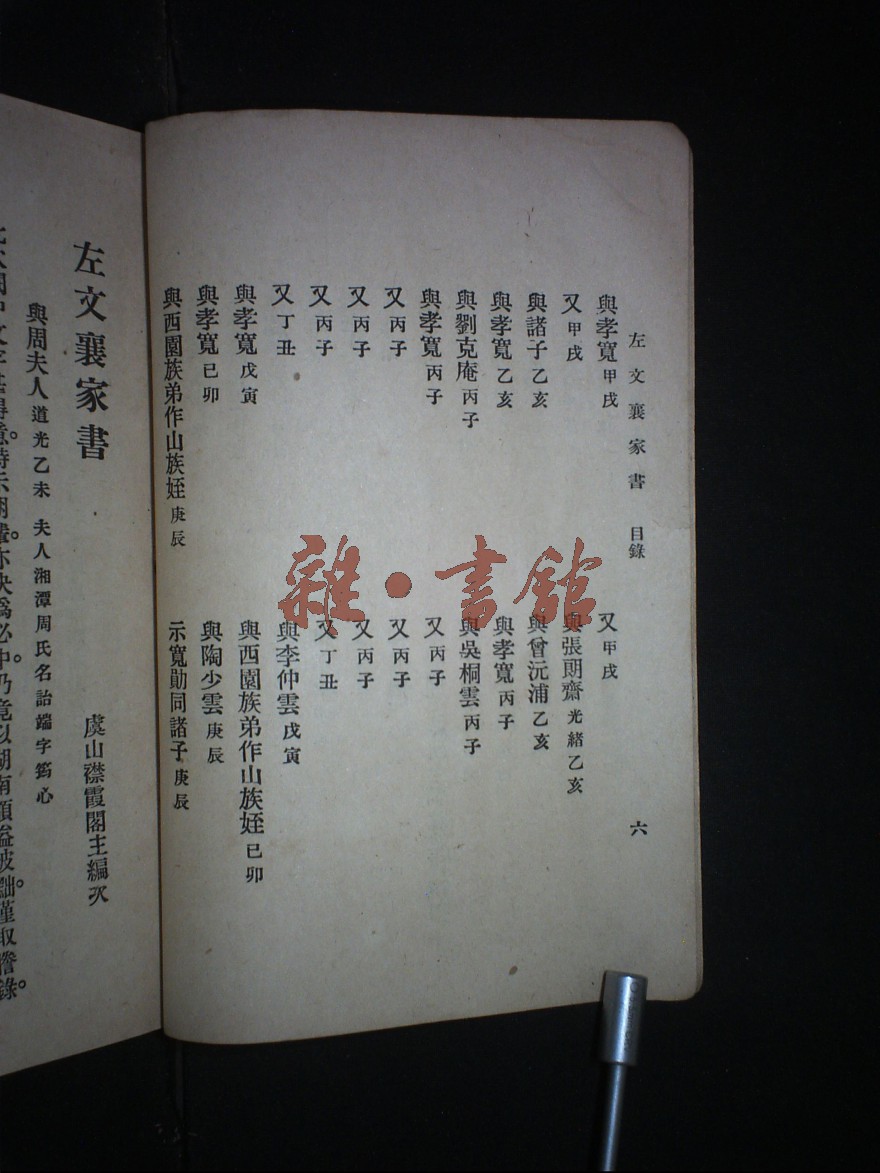 左文襄家書 目錄 六
與孝寬 甲戌
又 甲戌
又 甲戌
與張朗齋 光緒乙亥
與諸子 乙亥
與曾沅浦 乙亥
與孝寬 乙亥
與孝寬 丙子
與劉克庵 丙子
與吳桐雲 丙子
與孝寬 丙子
又 丙子
又 丙子
又 丙子
又 丙子
又 丙子
又 丙子
又 丁丑
又 丁丑
與李仲雲 戊寅
與孝寬 戊寅
與西園族弟作山族姪 已卯
與孝寬 已卯
與陶少雲 庚辰
與西園族弟作山族姪 庚辰
示寬勛同諸子 庚辰
左文襄家書
虞山襟霞閣主編次
與周夫人 道光乙未 夫人湘潭周氏名詒端字筠心
雜·書館